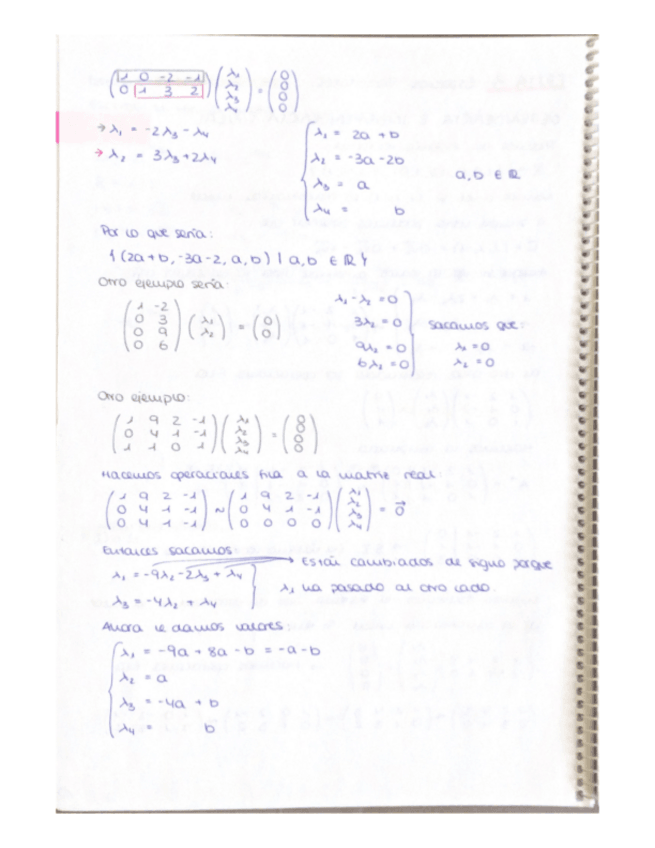 ( 1 0 -2 -1 / 0 1 3 2 ) ( λ₁ λ₂ λ₃ λ₄ ) = ( 0 0 0 0 )
→ λ₁ = -2λ₃ - λ₄
→ λ₂ = 3λ₃ + 2λ₄
λ₁ = 2a + b
λ₂ = -3a - 2b
λ₃ = a
λ₄ = b
a, b ∈ ℝ
Por lo que sería:
{ (2a+b, -3a-2, a, b) | a, b ∈ ℝ }
Otro ejemplo sería:
( 1 -2 / 0 3 / 0 9 / 0 6 ) ( λ₁ λ₂ ) = ( 0 0 )
λ₁ - λ₂ = 0
3λ₂ = 0
9λ₂ = 0
6λ₂ = 0
sacamos que:
λ₁ = 0
λ₂ = 0
Otro ejemplo:
( 1 9 2 -1 / 0 4 1 -1 / 1 1 0 1 ) ( λ₁ λ₂ λ₃ λ₄ ) = ( 0 0 0 0 )
Hacemos operaciones fila a la matriz real:
( 1 9 2 -1 / 0 4 1 -1 / 0 4 1 -1 ) ~ ( 1 9 2 -1 / 0 4 1 -1 / 0 0 0 0 ) ( λ₁ λ₂ λ₃ λ₄ ) = 0⃗
Entonces sacamos
→ Están cambiados de signo porque
λ₁ ha pasado al otro lado
λ₁ = -9λ₂ - 2λ₃ + λ₄
λ₃ = -4λ₂ + λ₄
Ahora le damos valores
λ₁ = -9a + 8a - b = -a - b
λ₂ = a
λ₃ = -4a + b
λ₄ = b